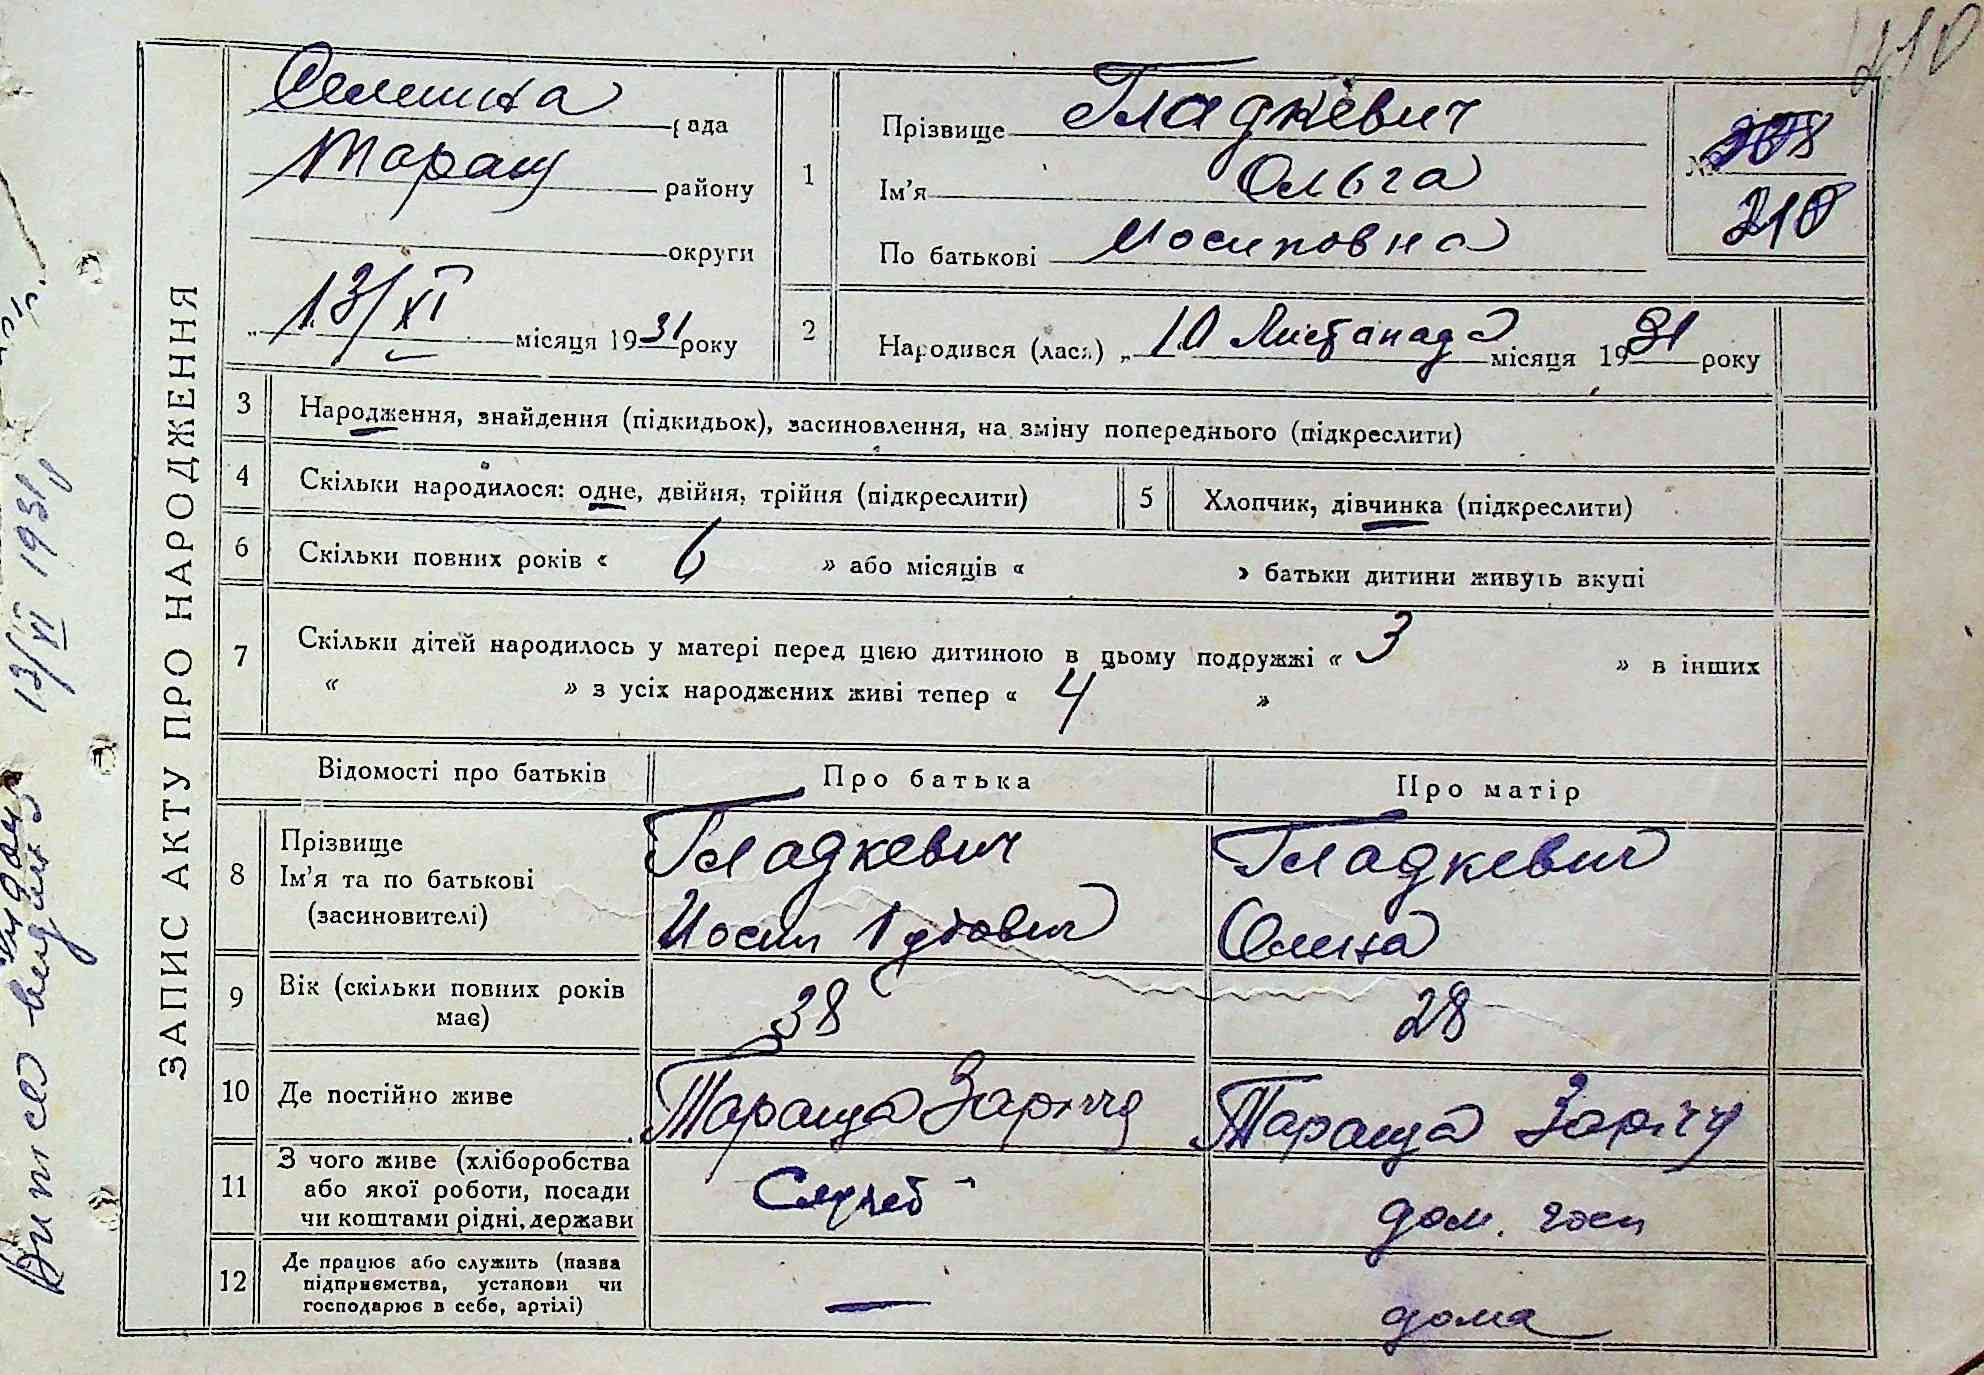 210
ЗАПИС АКТУ ПРО НАРОДЖЕННЯ
Селишна рада
Таращ району
округи
„13/XI місяця 1931 року
1
Прізвище Гладкевич
Ім'я Ольга
По батькові Иосиповна
№ 208
210
2 Народився (лась) „10 Листапада місяця 1931 року
3 Народження, знайдення (підкидьок), засиновлення, на зміну попереднього (підкреслити)
4 Скільки народилося: одне, двійня, трійня (підкреслити) 5 Хлопчик, дівчинка (підкреслити)
6 Скільки повних років « 6 » або місяців « » батьки дитини живуть вкупі
7 Скільки дітей народилось у матері перед цією дитиною в цьому подружжі « 3 » в інших
« » з усіх народжених живі тепер « 4 »
Відомості про батьків Про батька Про матір
8 Прізвище Гладкевич Гладкевич
Ім'я та по батькові
(засиновителі) Иосип Олена
9 Вік (скільки повних років має) 38 28
10 Де постійно живе Тараща Зарічча Тараща Заріччу
11 З чого живе (хліборобства
або якої роботи, посади
чи коштами рідні, держави Служб дом. госп
12 Де працює або служить (назва
підприємства, установи чи
господарює в себе, артілі) — дома
13/XI 1931